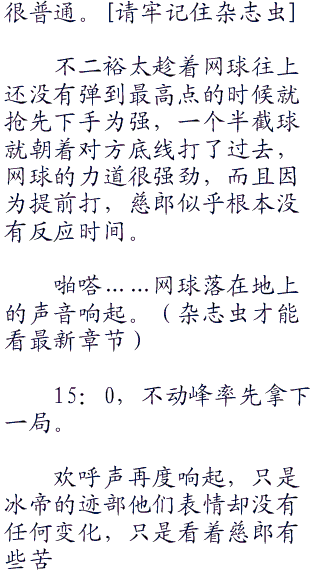 很普通。[请牢记住杂志虫]
不二裕太趁着网球往上
还没有弹到最高点的时候就
抢先下手为强，一个半截球
就朝着对方底线打了过去，
网球的力道很强劲，而且因
为提前打，慈郎似乎根本没
有反应时间。
啪嗒……网球落在地上
的声音响起。（杂志虫才能
看最新章节）
15：0，不动峰率先拿下
一局。
欢呼声再度响起，只是
冰帝的迹部他们表情却没有
任何变化，只是看着慈郎有
些苦